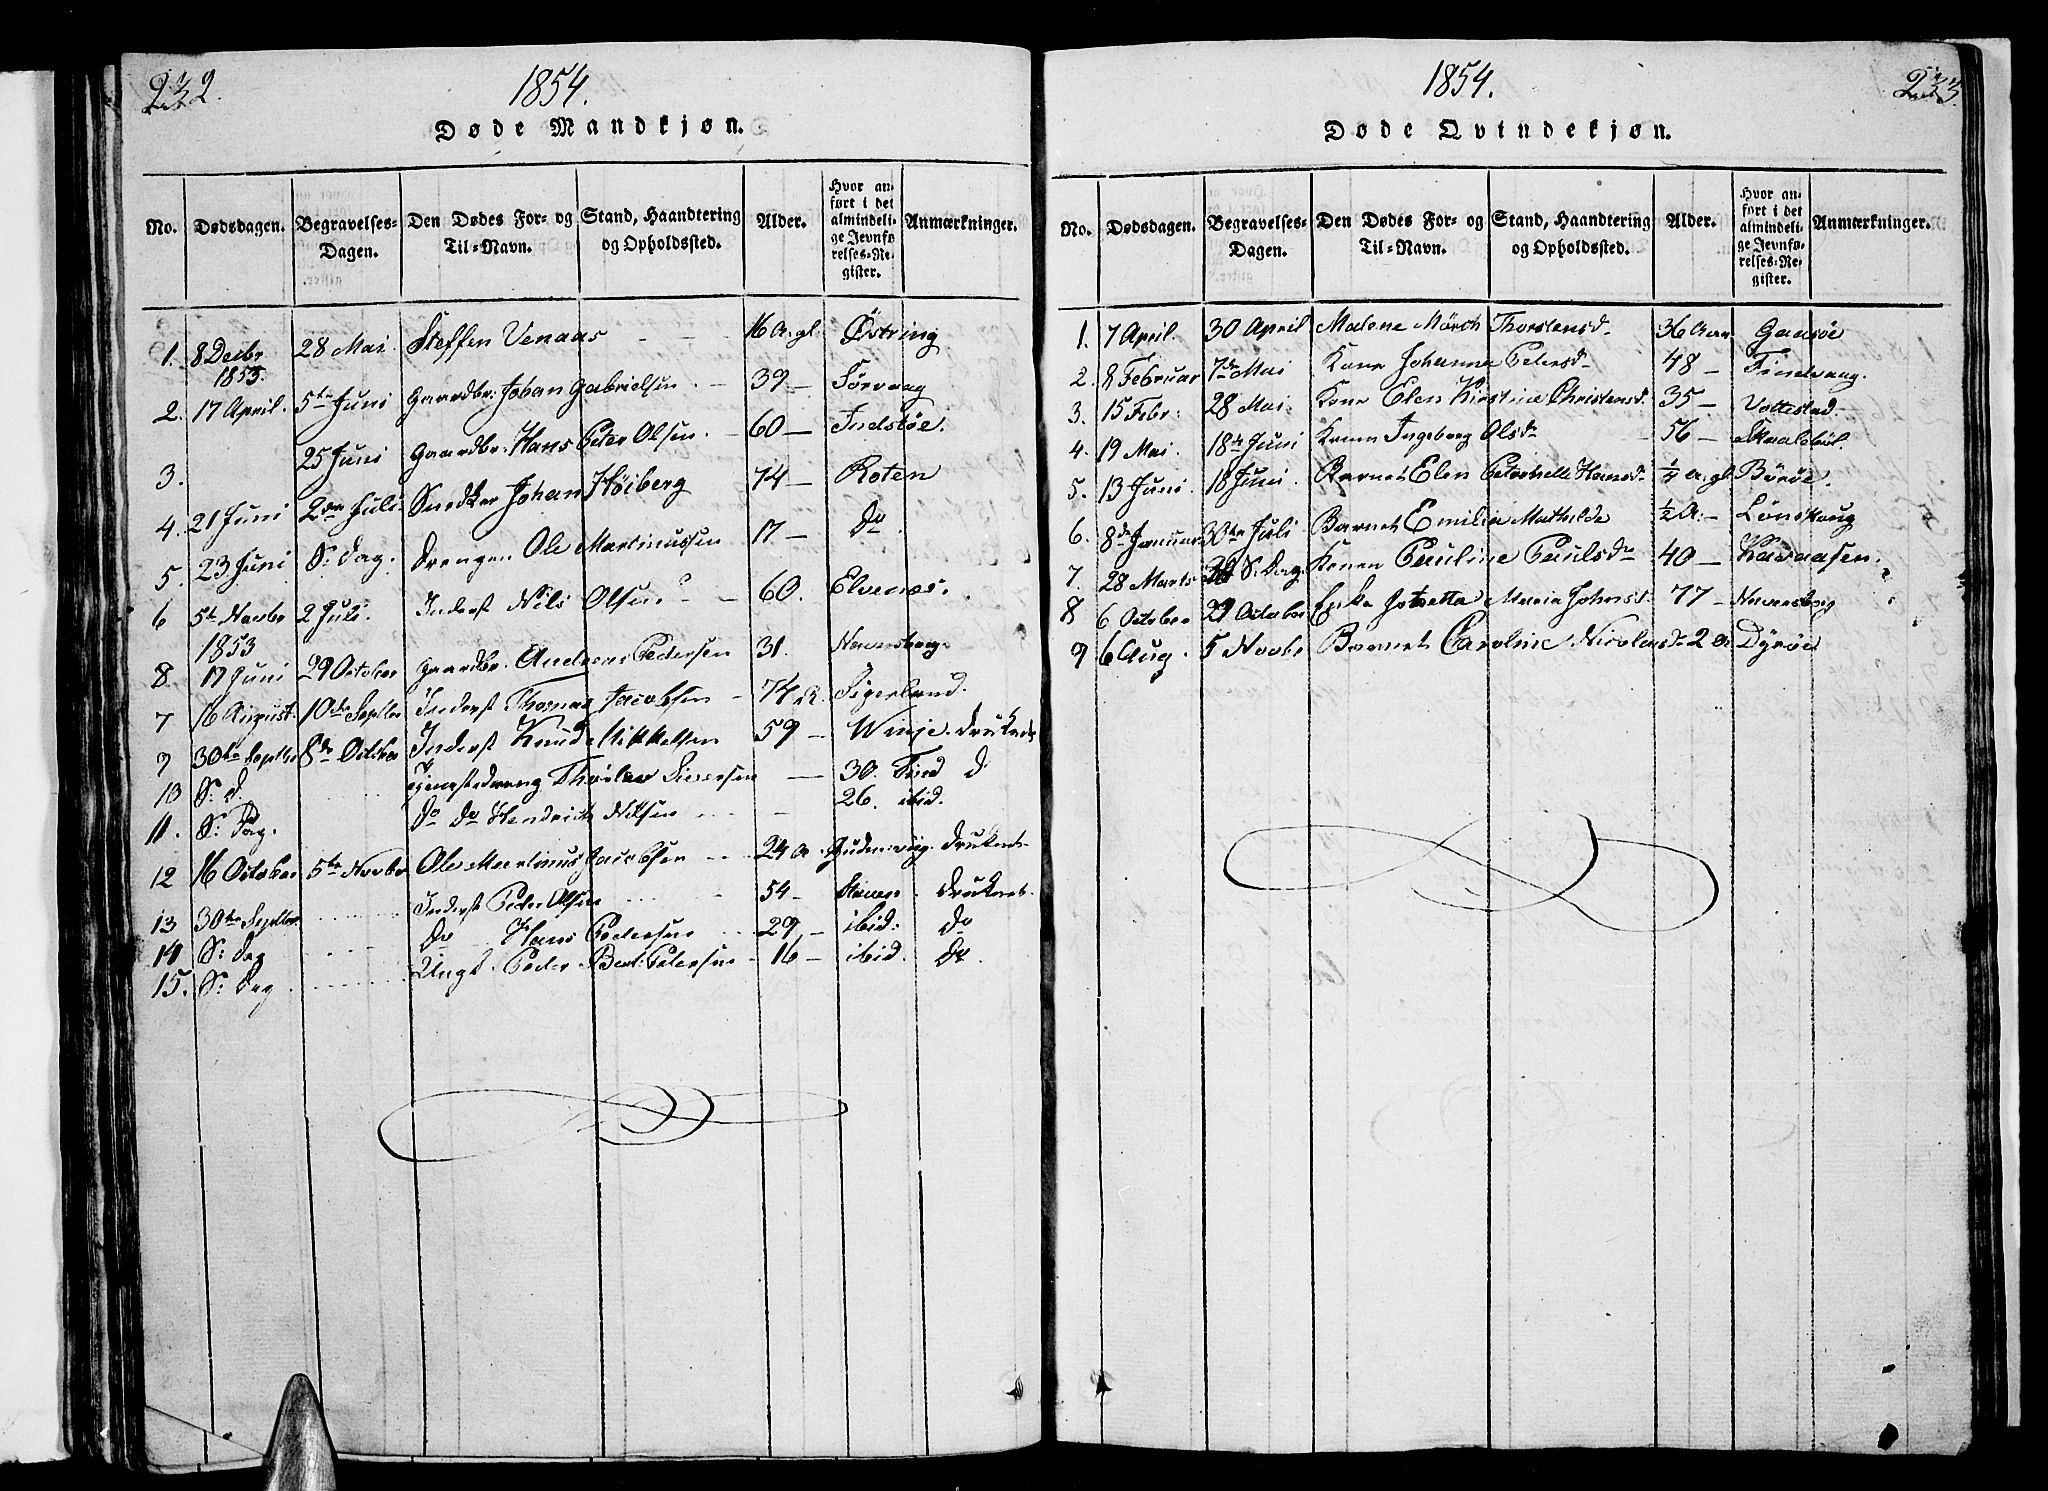 232.
1854.
Døde Mandkjøn.
No. Dødsdagen. Begravelses-Dagen. Den Dødes For- og Til-Navn. Stand, Haandtering og Opholdssted. Alder. Hvor anført i det almindelige Jevnførelses-Register. Anmærkninger.
1. 8 Decbr 1853. 28 Mai. Steffen Venaas 16 A. gl. Østring
2. 17 April. 5te Juni Gaardbr. Johan Gabrielsen 39 — Sørvaag
3. 25 Juni Gaardbr. Hans Peter Olsen. 60 — Indstøe.
4. 21 Juni 2den Juli Snedker Johan Høiberg 74 — Roten
5. 23 Juni S: Dag. Drengen Ole Martinussen 17 — Do
6 5te Novbr 1853 2 Juli. Inderst Nils Olsen 60. Elvenæs.
8. 17 Juni 29 October Gaardbr. Andreas Pedersen 31. Haversberg
7 16 August. 10de Septbr Inderst Thomas Jacobsen 74 Sigerland.
9 30te Septbr 8de October Inderst Knud Mikkelsen 59 — Winje. Druknet
10 S: D. Tjenestedreng Siversen — 30. Find D
11. S: Dag. Do Do Hendrich Nilsen 26. ibid.
12 16 October 5te Novbr Ole Martinus Jacobsen 24 A. Druknet
13 30te Septbr. Inderst Peder Olsen 54 — Druknet.
14 S: Dag Do Hans Pedersen 29 — ibid: Do
15. S: Dag Ungk. Peder Bert: Petersen 16 — ibid. Do.
233.
1854.
Døde Qvindekjøn.
No. Dødsdagen. Begravelses-Dagen. Den Dødes For- og Til-Navn. Stand, Haandtering og Opholdssted. Alder. Hvor anført i det almindelige Jevnførelses-Register. Anmærkninger.
1. 7 April. 30 April Malene Mörch Thorstensd. 36 Aar Gaasøe
2. 8 Februar 7de Mai Kone Johanna Petersd. 48 — Findvaag.
3. 15 Febr: 28 Mai. Kone Elen Kirstine Christensd. 35 — Vottestad.
4. 19 Mai. 18de Juni Konen Ingeborg Olsd 56 — Skaalsbøl.
5. 13 Juni. 18 Juni. Barnet Elen Petronelle Hansd. ¼ A. gl. Börøe.
6. 8de Januar 30te Juli Barnet Emilia Mathilde ½ A: — Lønskoug
7 28 Marts S: Dag. Konen Pauline Paulsd. 40 —
8 6 October 29 October Enke Maria Johnsd. 77 — Haversberg
9 6 Aug. 5 Novbr Barnet Caroline Nicolensd. 2 A. Dyrøe